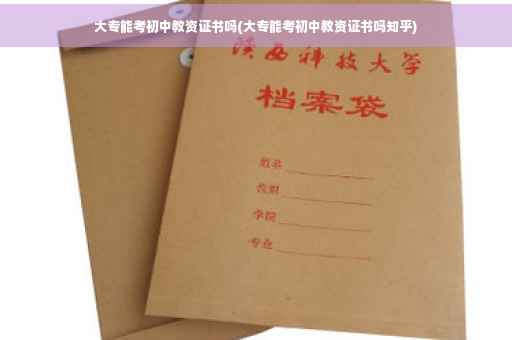 大专能考初中教资证书吗(大专能考初中教资证书吗知乎)
陕西科技大学
档案袋
姓名
学院
专业